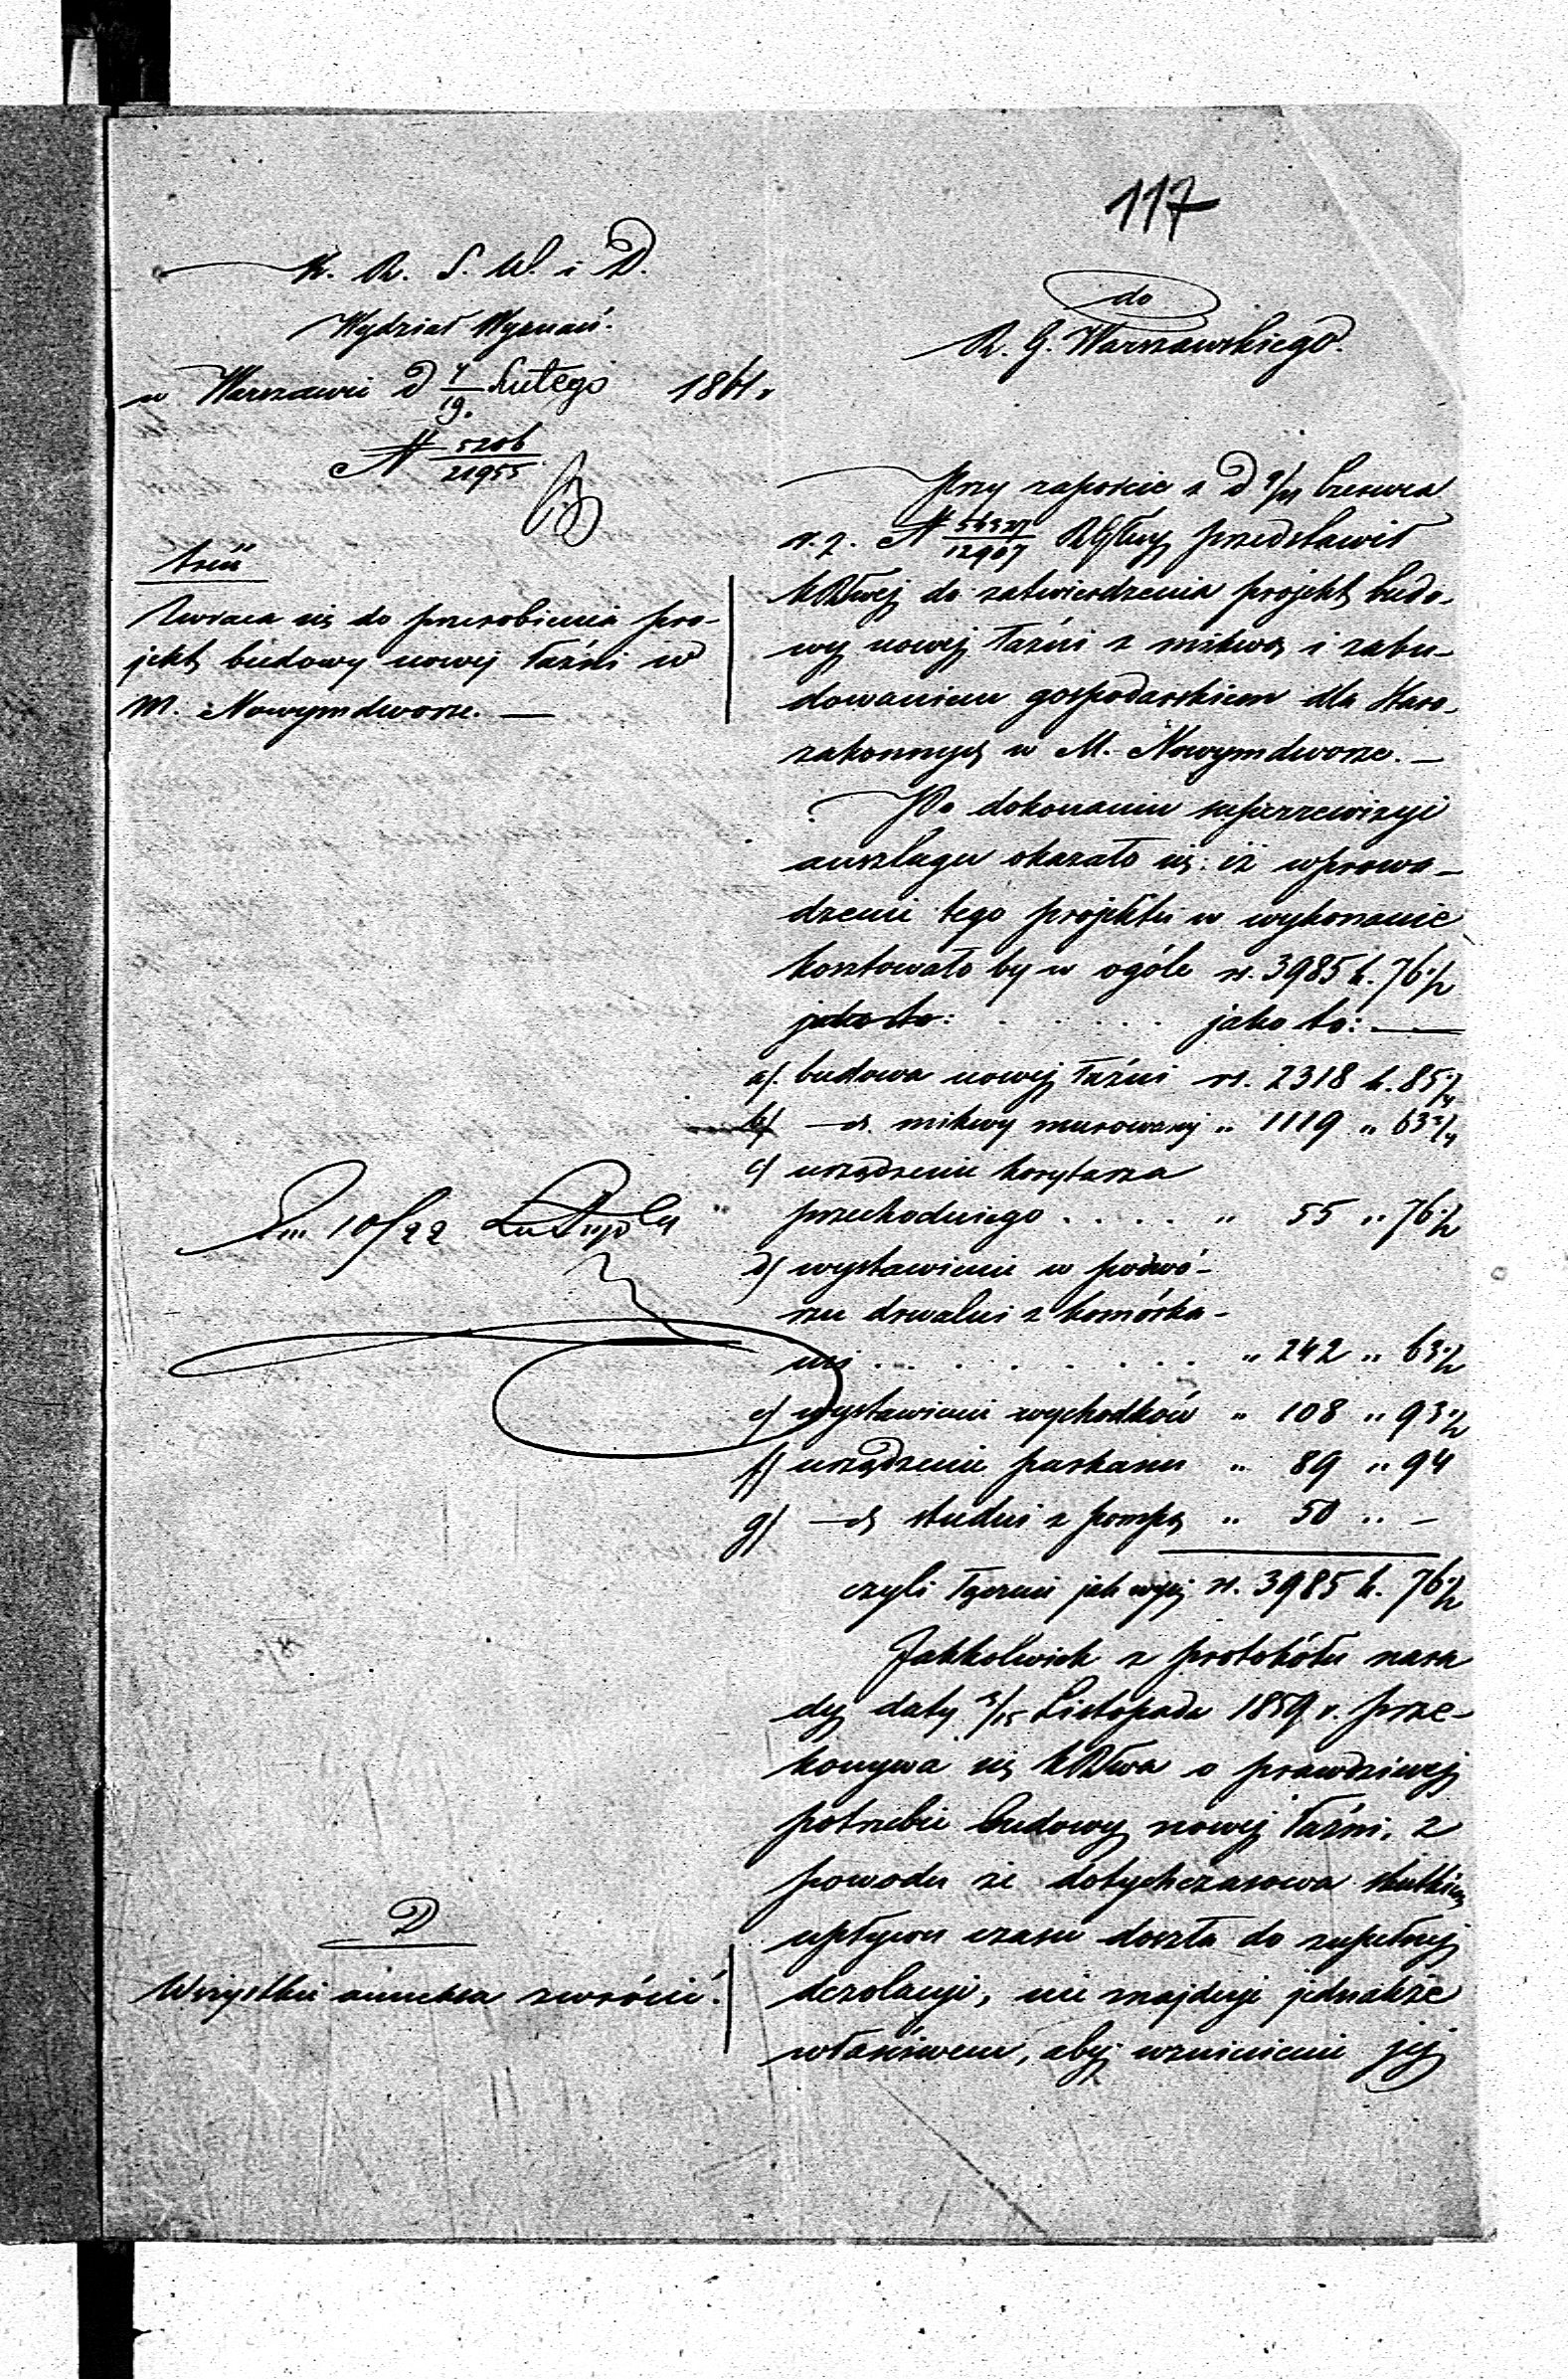 117
K. R. S. W. i D.
Wydział Wyznań.
w Warszawie D 7/19. Lutego 1861 r
N 5206/21955
treść
Zwraca się do przerobienia pro-
jekt budowy nowej łaźni w
M. Nowymdworze. —
Dn 10/22 Lutego
D
Wszystkie annexa zwrócić.
do
R. G. Warszawskiego.
Przy raporcie z D 9/21 Czerwca
r. z. N 56327/12907 RGłny przedstawił
KRWej do zatwierdzenia projekt budo-
wy nowej łaźni z mikwą i zabu-
dowaniem gospodarskiem dla Staro-
zakonnych w M. Nowymdworze. —
Po dokonaniu superrewizyi
anszlagu okazało się: iż wprowa-
dzenie tego projektu w wykonanie
kosztowało by w ogóle rs. 3985 k. 76 1/2
jako to: . . . . . . jako to: —
a/. budowa nowej łaźni rs. 2318 k. 85 1/4
b/ — d. mikwy murowanej „ 1119 „ 63 3/4
c/ urządzenie korytarza
przechodniego . . . . „ 55 „ 76 1/2
d/ wystawienie w podwó-
rzu drwalni z komórka-
mi . . . . . . . . . „ 242 „ 63 1/2
e/ wystawienie wychodków „ 108 „ 93 1/2
f/ urządzenie parkanu „ 89 „ 94
g/ — d studni z pompą „ 50 „ —
czyli łącznie jak wyżej rs. 3985 k. 76 1/2
Jakkolwiek z protokółu nara
dy daty 3/15 Listopada 1859 r. prze-
konywa się KRWa o prawdziwej
potrzebie budowy nowej łaźni, z
powodu że dotychczasowa skutkiem
upływu czasu doszła do zupełnej
dezolacyi, nie znajduje jednakże
właściwem, aby wzniesienie jej